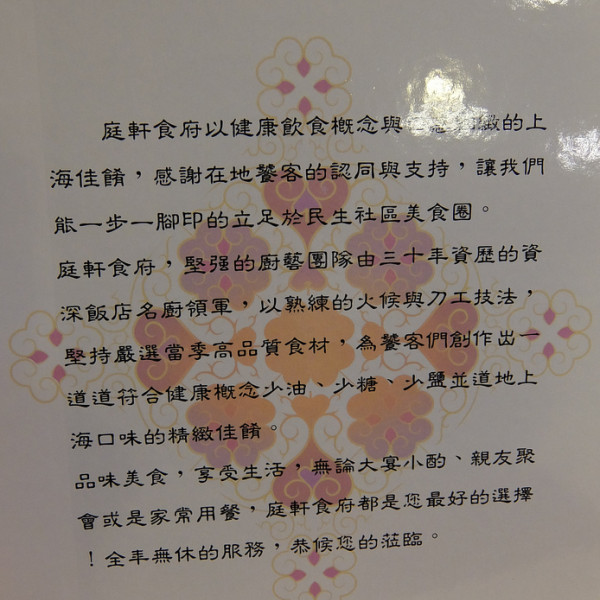 庭軒食府以健康飲食概念與 緻的上
海佳餚，感謝在地饕客的認同與支持，讓我們
能一步一腳印的立足於民生社區美食圈。
庭軒食府，堅强的廚藝團隊由三十年資歷的資
深飯店名廚領軍，以熟練的火候與刀工技法，
堅持嚴選當季高品質食材，為饕客們創作出一
道道符合健康概念少油、少糖、少鹽並道地上
海口味的精緻佳餚。
品味美食，享受生活，無論大宴小酌、親友聚
會或是家常用餐，庭軒食府都是您最好的選擇
！全年無休的服務，恭候您的蒞臨。